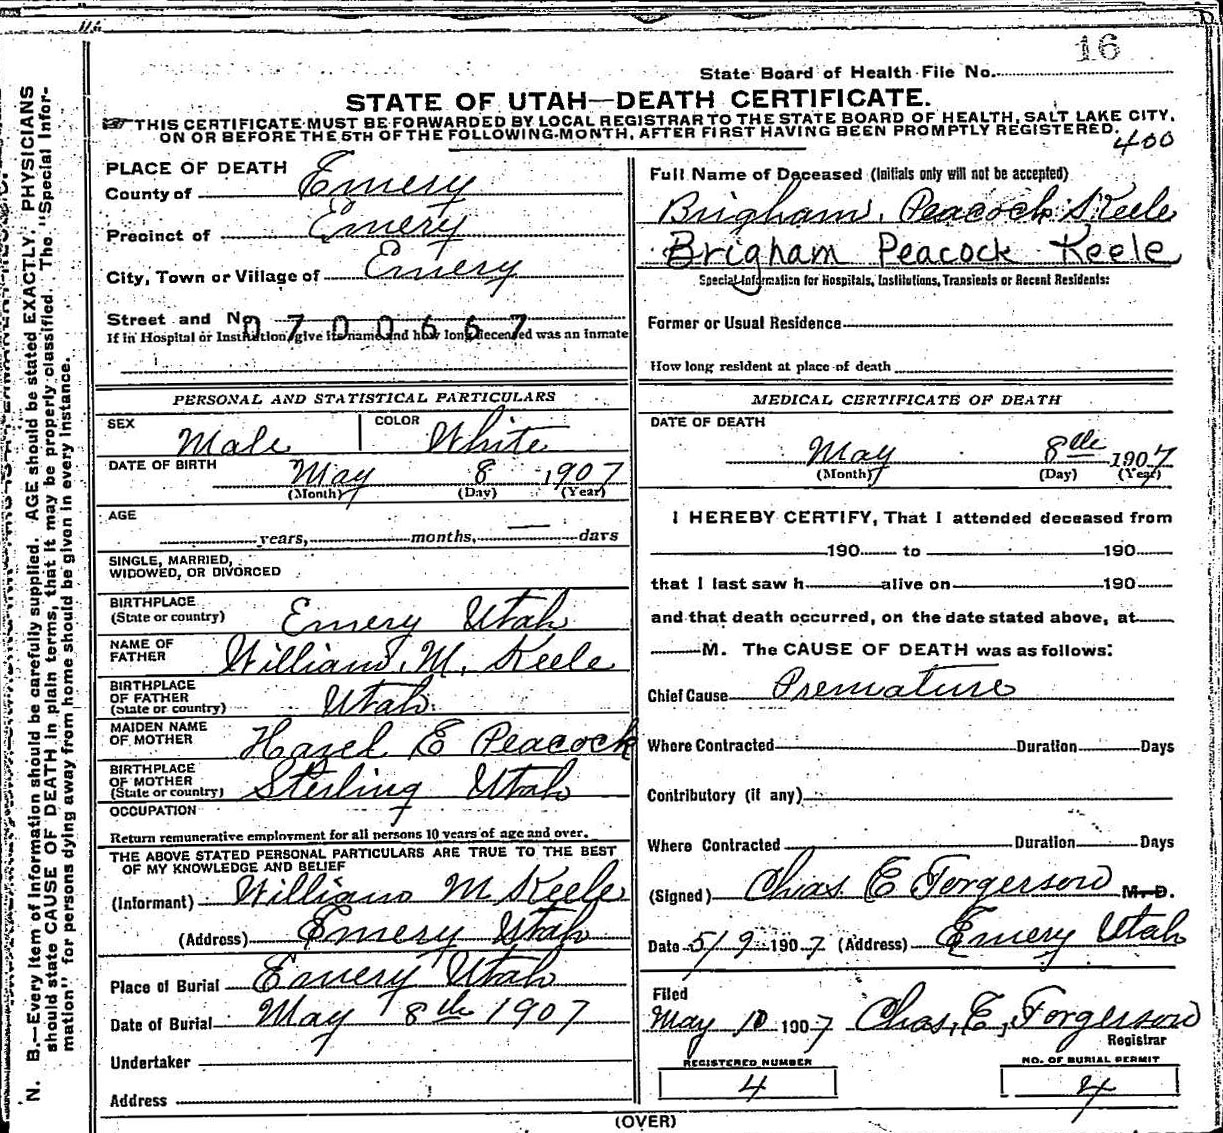 16
State Board of Health File No.
STATE OF UTAH—DEATH CERTIFICATE.
THIS CERTIFICATE MUST BE FORWARDED BY LOCAL REGISTRAR TO THE STATE BOARD OF HEALTH, SALT LAKE CITY,
ON OR BEFORE THE 5TH OF THE FOLLOWING MONTH, AFTER FIRST HAVING BEEN PROMPTLY REGISTERED.
400
PLACE OF DEATH
County of Emery
Precinct of Emery
City, Town or Village of Emery
Street and No
0700667
If in Hospital or Institution, give its name and how long deceased was an inmate
Full Name of Deceased (Initials only will not be accepted)
Brigham Peacock Keele
Brigham Peacock Keele
Special Information for Hospitals, Institutions, Transients or Recent Residents:
Former or Usual Residence
How long resident at place of death
PERSONAL AND STATISTICAL PARTICULARS
SEX Male COLOR White
DATE OF BIRTH May 8 1907
(Month) (Day) (Year)
AGE
years, months, — days
SINGLE, MARRIED,
WIDOWED, OR DIVORCED
BIRTHPLACE
(State or country) Emery Utah
NAME OF
FATHER William M. Keele
BIRTHPLACE
OF FATHER
(State or country) Utah
MAIDEN NAME
OF MOTHER Hazel E Peacock
BIRTHPLACE
OF MOTHER
(State or country) Sterling Utah
OCCUPATION
Return remunerative employment for all persons 10 years of age and over.
THE ABOVE STATED PERSONAL PARTICULARS ARE TRUE TO THE BEST
OF MY KNOWLEDGE AND BELIEF
(Informant) William M Keele
(Address) Emery Utah
Place of Burial Emery Utah
Date of Burial May 8th 1907
Undertaker
Address
MEDICAL CERTIFICATE OF DEATH
DATE OF DEATH
May 8th 1907
(Month) (Day) (Year)
I HEREBY CERTIFY, That I attended deceased from
190 to 190
that I last saw h alive on 190
and that death occurred, on the date stated above, at
M. The CAUSE OF DEATH was as follows:
Chief Cause Premature
Where Contracted Duration Days
Contributory (if any)
Where Contracted Duration Days
(Signed) Chas E Torgerson M. D.
Date 5/9 1907 (Address) Emery Utah
Filed
May 10 1907 Chas, E, Torgerson
Registrar
REGISTERED NUMBER
4
NO. OF BURIAL PERMIT
4
(OVER)
N. B.—Every item of information should be carefully supplied. AGE should be stated EXACTLY. PHYSICIANS
should state CAUSE OF DEATH in plain terms, that it may be properly classified. The "Special Infor-
mation" for persons dying away from home should be given in every instance.